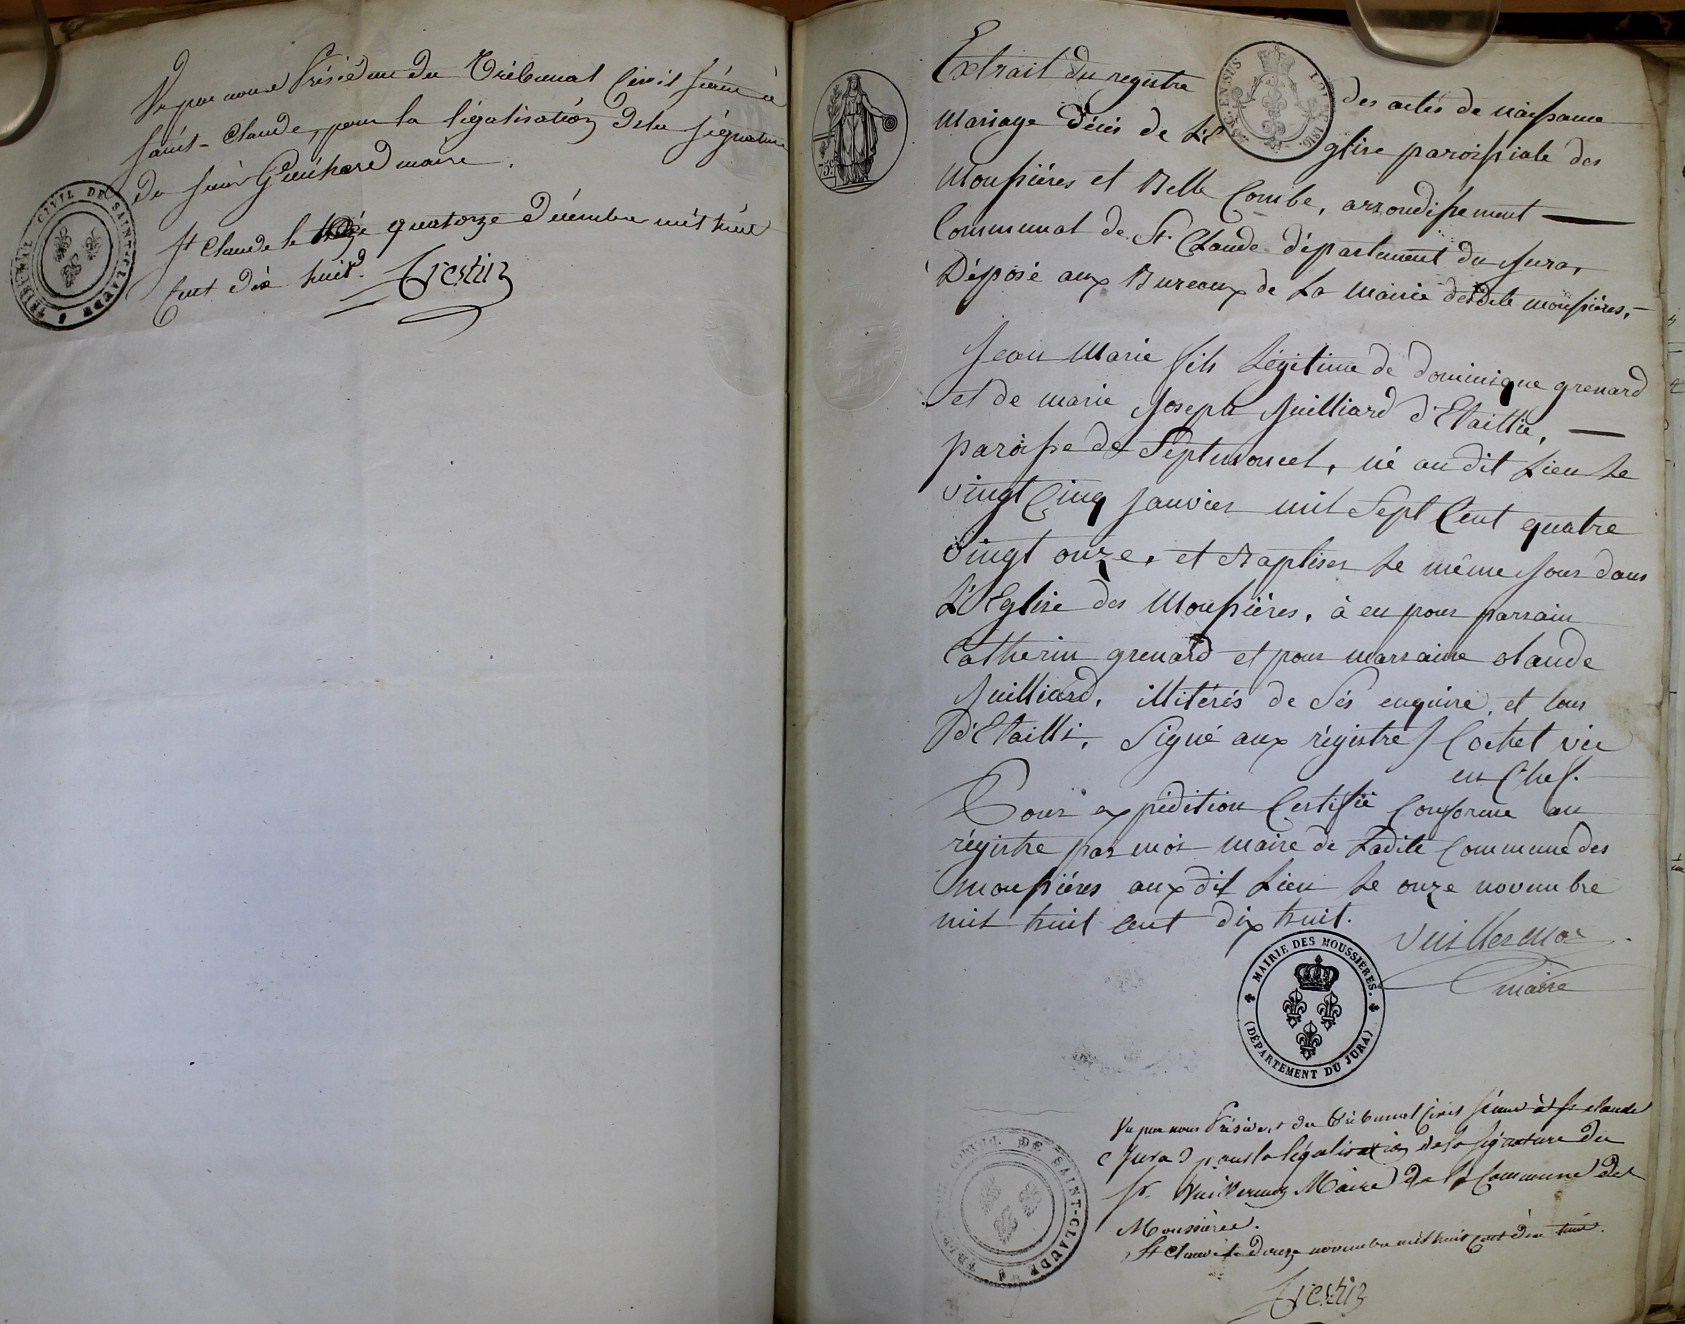 Vu par nous Président du Tribunal Civil séant à
Saint-Claude, pour la légalisation de la signature
du sieur maire.
St Claude le quatorze décembre mil huit
Cent dix huit.
Crestin
TRIBUNAL CIVIL DE SAINT-CLAUDE
Extrait du registre des actes de naissance
Mariage décès de L'Eglise paroissiale des
Moussières et Belle Combe, arrondissement
Communal de St. Claude département du Jura,
Déposé aux Bureaux de La Mairie desdite moussières.
75c
Jean Marie fils Légitime de dominique grenard
et de marie Joseph Juilliard d'Etaillié,
paroisse de Septmoncel, né audit Lieu Le
vingt Cinq Janvier mil Sept Cent quatre
vingt onze, et Baptiser Le même Jour dans
L'Eglise des Moussières, à eu pour parrain
Catherin grenard et pour marraine claude
Juilliard, illitérés de Sés enquire, et tous
d'Etailli, Signé aux régistre J Cochet vic
en Chef.
Pour expédition Certifié Conforme au
régistre par moi maire de Ladite Commune des
moussières auxdit Lieu Le onze novembre
mil huit cent dix huit.
Vuillermoz
maire
MAIRIE DES MOUSSIERES.
(DÉPARTEMENT DU JURA)
Vu par nous Président du Tribunal Civil séant à St claude
(Jura) pour la légalisation de la signature du
Sr. Vuillermoz Maire de la Commune des
Moussières.
St Claude le douze novembre mil huit cent dix huit.
Crestin
TRIBUNAL CIVIL DE SAINT-CLAUDE